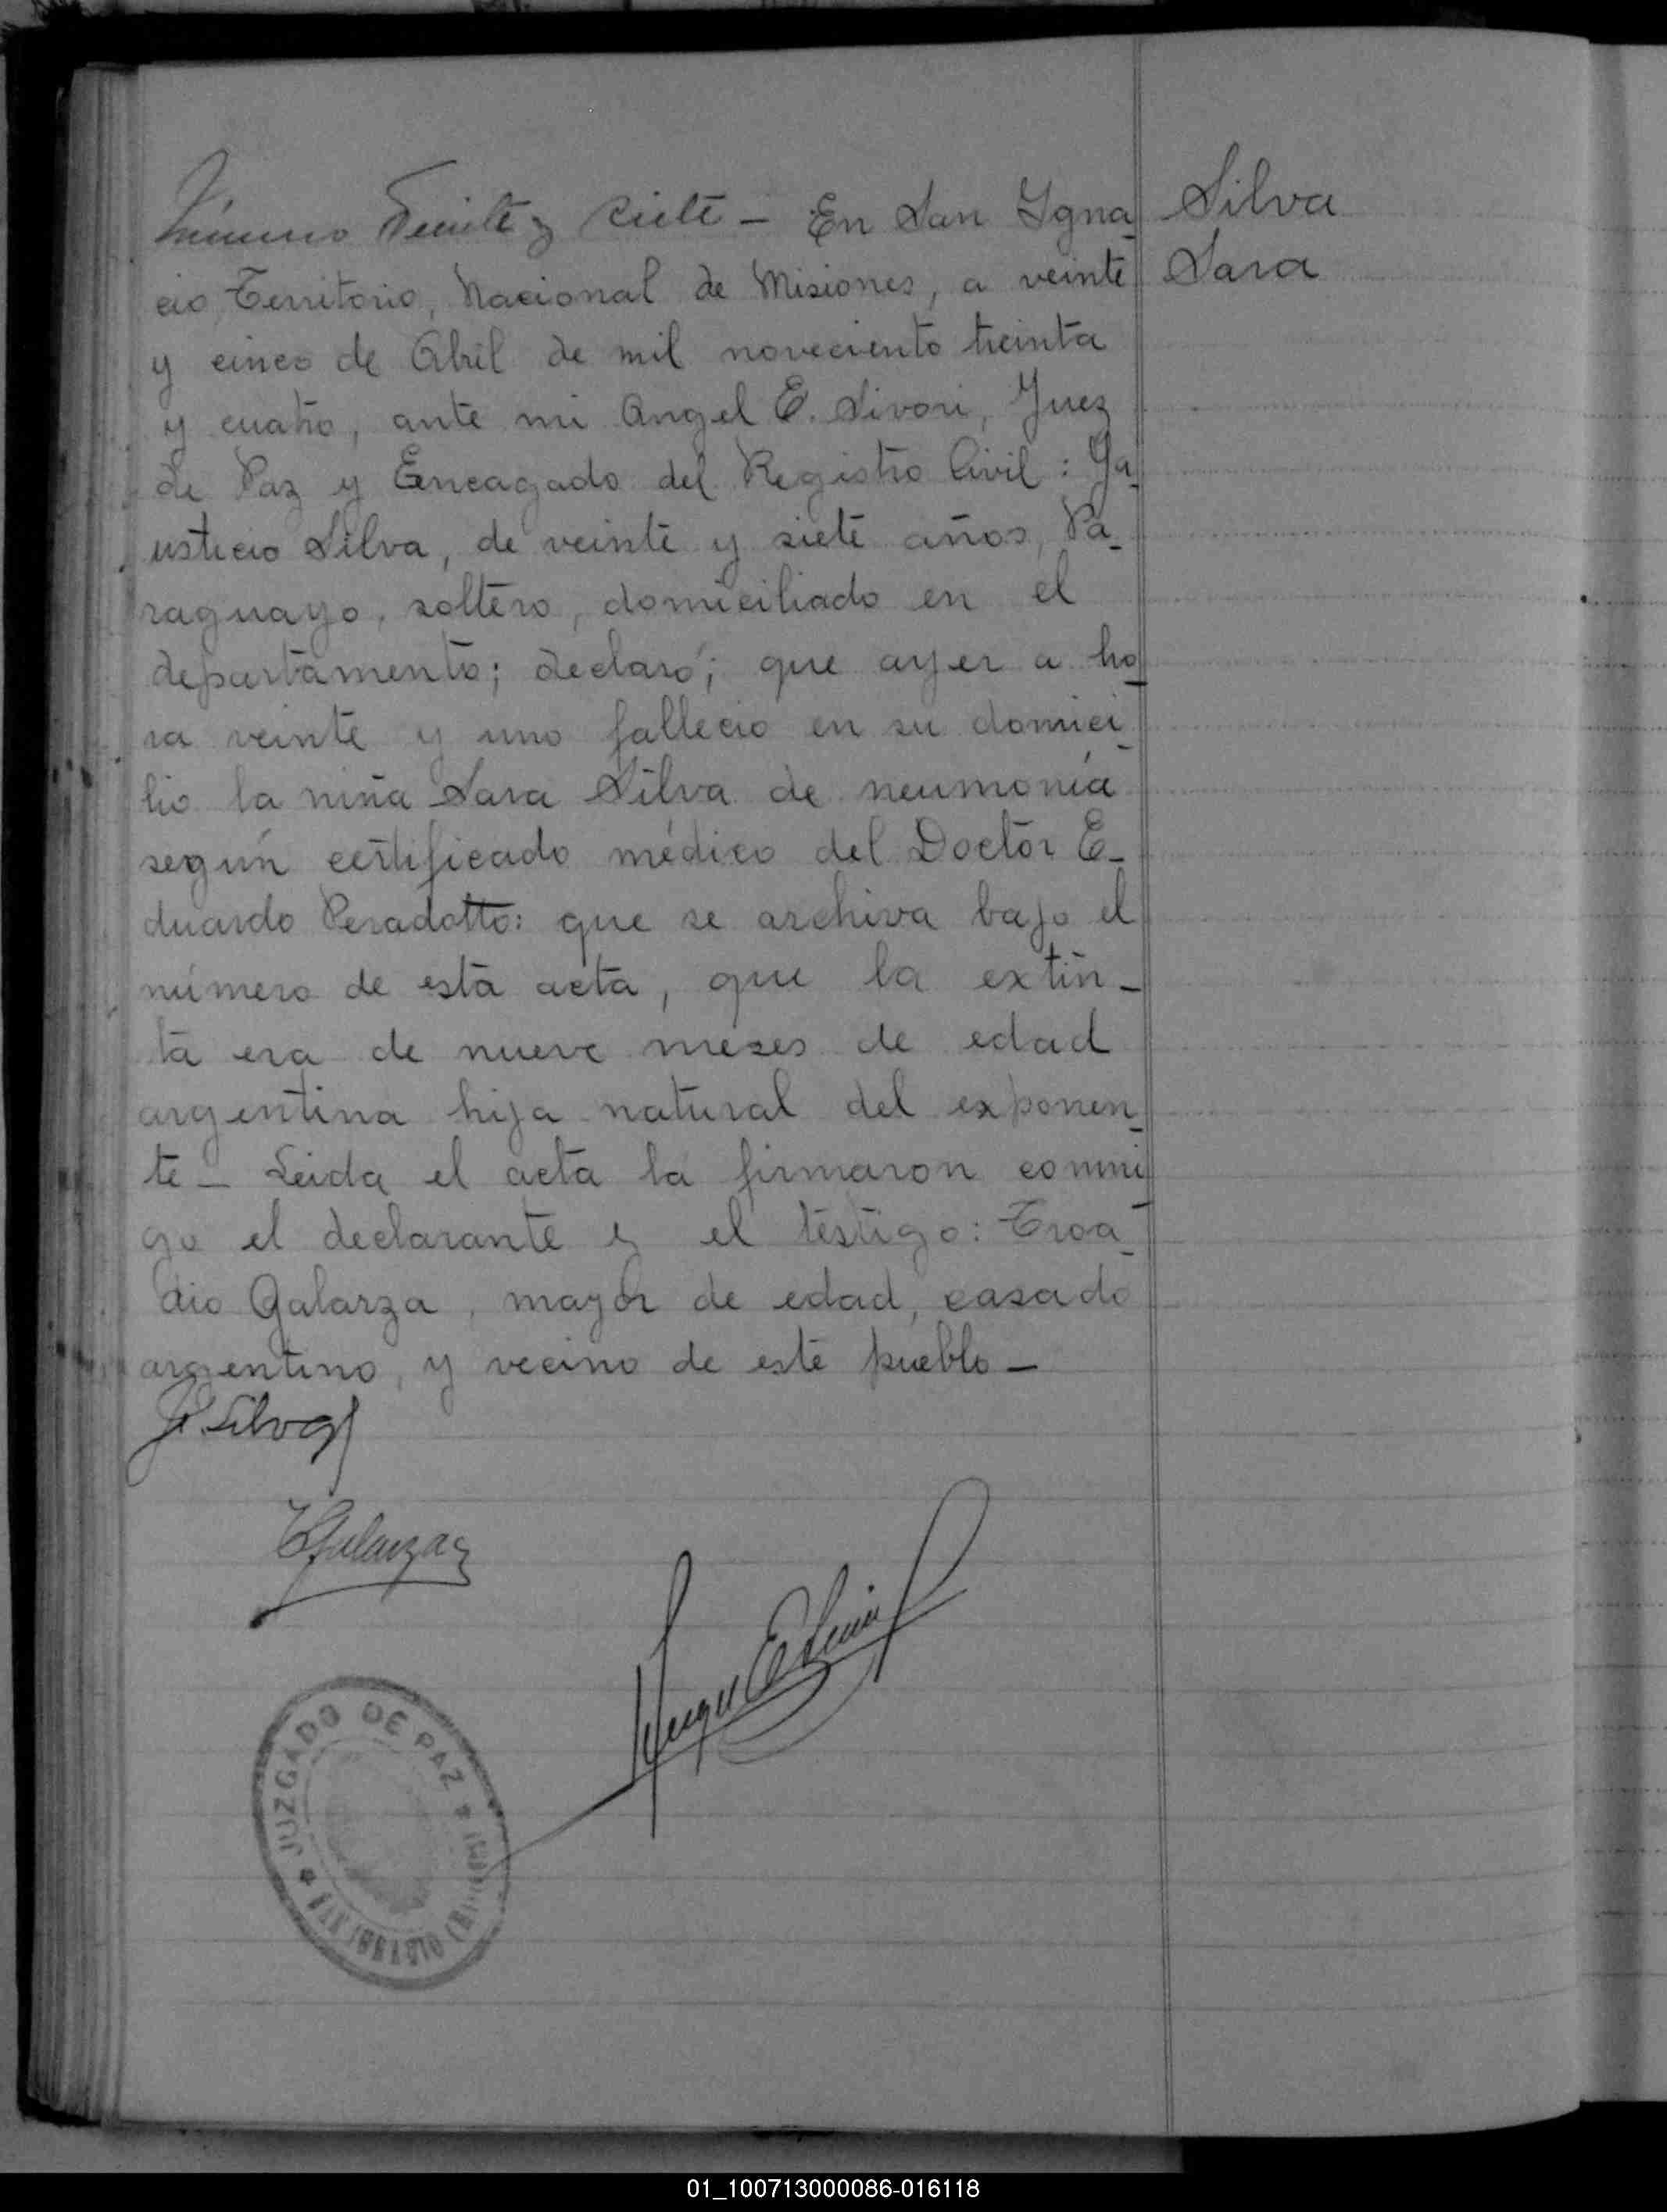 Número Veinte y siete – En San Ygna
cio, Territorio, Nacional de Misiones, a veinte
y cinco de Abril de mil noveciento treinta
y cuatro, ante mi Angel E. Sivori, Juez
de Paz y Eencagado del Registro Civil: Ga_
usticio Silva, de veinte y siete años, Pa_
raguayo, soltero, domiciliado en el
departamento; declaró; que ayer a ho_
ra veinte y uno fallecio en su domici_
lio la niña Sara Silva de neumonía
según certificado médico del Doctor E_
duardo Peradotto: que se archiva bajo el
número de esta acta, que la extin_
ta era de nueve meses de edad
argentina hija natural del exponen_
te – Leida el acta la firmaron conmi_
go el declarante y el testigo: Troa_
dio Galarza, mayor de edad, casado
argentino, y vecino de este pueblo –
Silva
Sara
G. Silva
T Galarza
Angel E Sivori
JUZGADO DE PAZ
SAN IGNACIO (Misiones)
01_100713000086-016118